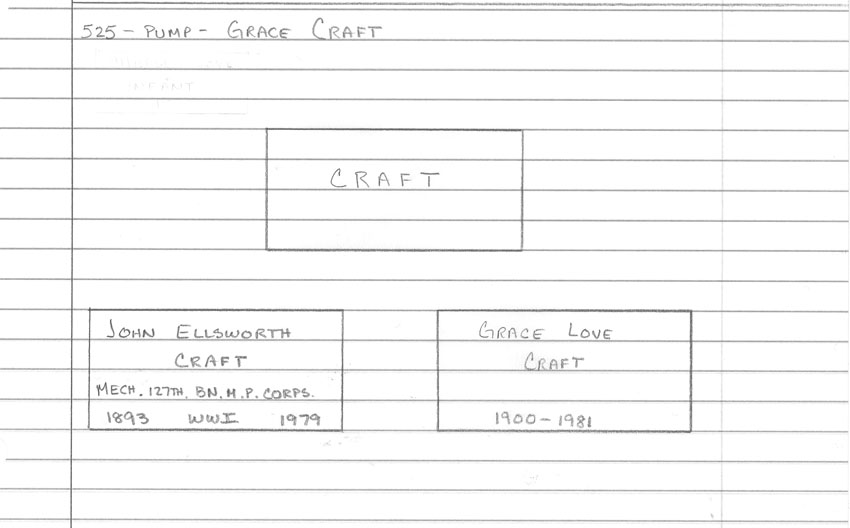 525 - PUMP - GRACE CRAFT
INFANT
CRAFT
JOHN ELLSWORTH
CRAFT
MECH. 127TH. BN. M.P. CORPS.
1893 WWI 1979
GRACE LOVE
CRAFT
1900 - 1981